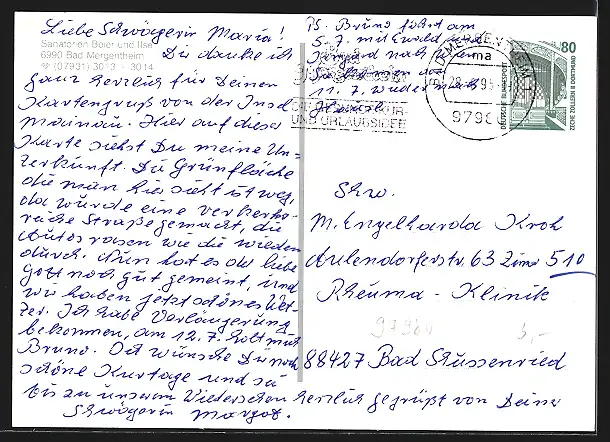 Liebe Schwägerin Maria!
Sanatorien Beier und Ilse
6990 Bad Mergentheim
☎ (07931) 3013 - 3014
Dir danke ich
ganz herzlich für Deinen
Kartengruß von der Insel
Mainau. Hier auf dieser
Karte siehst Du meine Un-
terkunft. Die Grünfläche
die man hier sieht ist weg,
da wurde eine verkehrs-
reiche Straße gemacht, die
Autos rasen wie die wilden
durch. Nun hat es der liebe
Gott noch gut gemeint, und
wir haben jetzt schönes Wet-
ter. Ich habe Verlängerung
bekommen, am 12.7. holt mich
Bruno. Dir wünsche Du noch
schöne Kurtage und sei
bis zu unserem Wiedersehen herzlich gegrüßt von Deiner
Schwägerin Margot.
Ps. Bruno fährt am
5.7. mit Ewald und
Irmgard nach
11.7. wieder
KUR-
UND URLAUBSIDEE
MERGENTHEIM 1
9798
80
DEUTSCHE BUNDESPOST
ZECHE ZOLLERN II DORTMUND
Schw.
M. Engelharda Kroh
Aulendorferstr. 63 Zimr 510
Rheuma - Klinik
97980
3,-
88427 Bad Schussenried